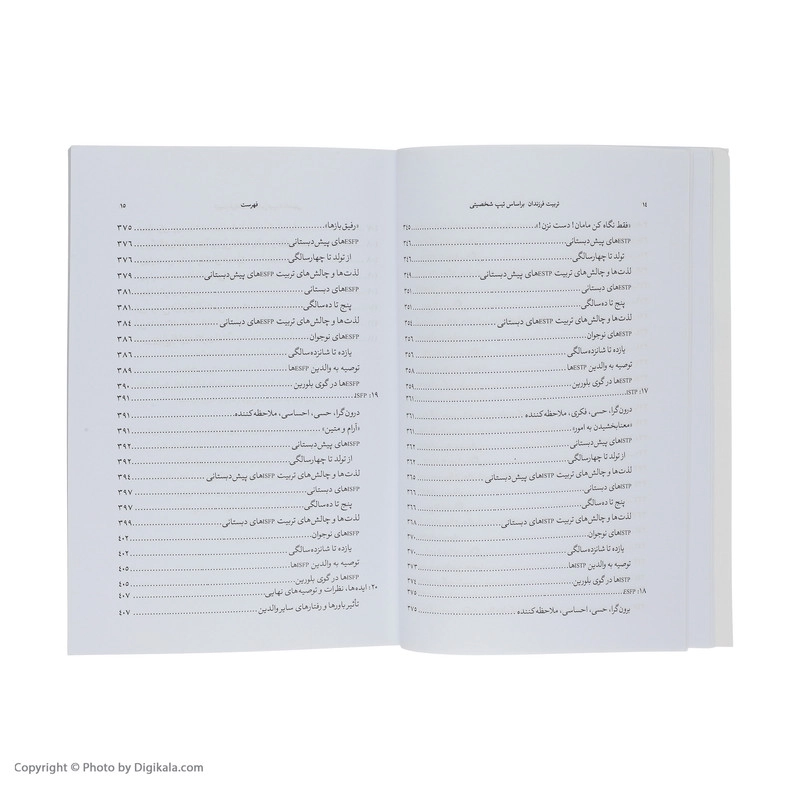 ۱۴ تربیت فرزندان براساس تیپ شخصیتی
«فقط نگاه کن مامان! دست نزن!» ۳۴۵
ESTPهای پیش‌دبستانی ۳۴۶
از تولد تا چهارسالگی ۳۴۶
لذت‌ها و چالش‌های تربیت ESTPهای پیش‌دبستانی ۳۴۹
ESTPهای دبستانی ۳۵۱
پنج تا ده‌سالگی ۳۵۱
لذت‌ها و چالش‌های تربیت ESTPهای دبستانی ۳۵۴
ESTPهای نوجوان ۳۵۶
یازده تا شانزده‌سالگی ۳۵۶
توصیه به والدین ESTPها ۳۵۸
ESTPها در گوی بلورین ۳۵۹
۱۷: ISTP ۳۶۱
درون‌گرا، حسی، فکری، ملاحظه‌کننده ۳۶۱
«معنابخشیدن به امور» ۳۶۱
ISTPهای پیش‌دبستانی ۳۶۲
از تولد تا چهارسالگی ۳۶۲
لذت‌ها و چالش‌های تربیت ISTPهای پیش‌دبستانی ۳۶۵
ISTPهای دبستانی ۳۶۶
پنج تا ده‌سالگی ۳۶۶
لذت‌ها و چالش‌های تربیت ISTPهای دبستانی ۳۶۸
ISTPهای نوجوان ۳۷۰
یازده تا شانزده‌سالگی ۳۷۰
توصیه به والدین ISTPها ۳۷۳
ISTPها در گوی بلورین ۳۷۴
۱۸: ESFP ۳۷۵
برون‌گرا، حسی، احساسی، ملاحظه‌کننده ۳۷۵
فهرست ۱۵
«رفیق‌بازها» ۳۷۵
ESFPهای پیش‌دبستانی ۳۷۶
از تولد تا چهارسالگی ۳۷۶
لذت‌ها و چالش‌های تربیت ESFPهای پیش‌دبستانی ۳۷۹
ESFPهای دبستانی ۳۸۱
پنج تا ده‌سالگی ۳۸۱
لذت‌ها و چالش‌های تربیت ESFPهای دبستانی ۳۸۴
ESFPهای نوجوان ۳۸۶
یازده تا شانزده‌سالگی ۳۸۶
توصیه به والدین ESFPها ۳۸۹
ESFPها در گوی بلورین ۳۹۰
۱۹: ISFP ۳۹۱
درون‌گرا، حسی، احساسی، ملاحظه‌کننده ۳۹۱
«آرام و متین» ۳۹۱
ISFPهای پیش‌دبستانی ۳۹۲
از تولد تا چهارسالگی ۳۹۲
لذت‌ها و چالش‌های تربیت ISFPهای پیش‌دبستانی ۳۹۴
ISFPهای دبستانی ۳۹۷
پنج تا ده‌سالگی ۳۹۷
لذت‌ها و چالش‌های تربیت ISFPهای دبستانی ۳۹۹
ISFPهای نوجوان ۴۰۲
یازده تا شانزده‌سالگی ۴۰۲
توصیه به والدین ISFPها ۴۰۵
ISFPها در گوی بلورین ۴۰۵
۲۰: ایده‌ها، نظرات و توصیه‌های نهایی ۴۰۷
تأثیر باورها و رفتارهای سایر والدین ۴۰۷
Copyright © Photo by Digikala.com